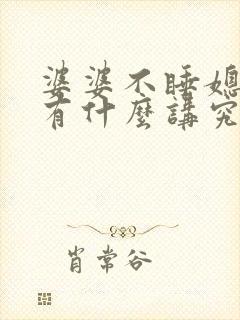 婆婆不睡媳
有什麼講究
肖常谷